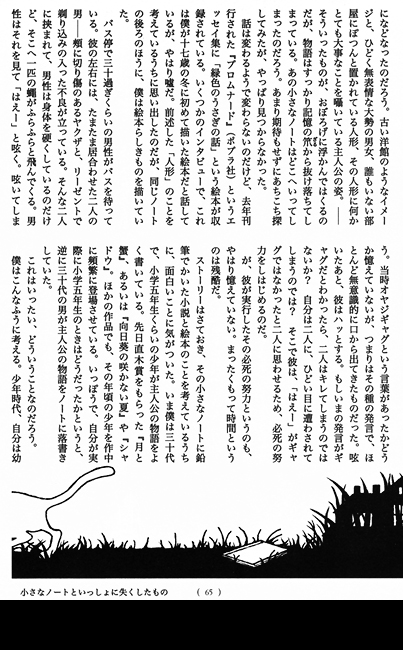 になどなったのだろう。古い洋館のようなイメー
ジと、ひどく無表情な大勢の男女、誰もいない部
屋にぽつんと置かれている人形、その人形に何か
とても大事なことを囁いている主人公の姿。――
そういったものが、おぼろげに浮かんではくるの
だが、物語はすっかり記憶の笊から抜け落ちてし
まっている。あの小さなノートはどこへいってし
まったのだろう。あまり期待もせずにあちこち探
してみたが、やっぱり見つからなかった。
話は変わるようで変わらないのだけど、去年刊
行された『プロムナード』(ポプラ社)というエ
ッセイ集に「緑色のうさぎの話」という絵本が収
録されている。いくつかのインタビューで、これ
は僕が十七歳の冬に初めて描いた絵本だと話して
いるが、やはり嘘だ。前述した「人形」のことを
考えているうちに思い出したのだが、同じノート
の後ろのほうに、僕は絵本らしきものを描いてい
た。
バス停で三十過ぎくらいの男性がバスを待って
いる。彼の左右には、たまたま居合わせた二人の
男――頬に切り傷のあるヤクザと、リーゼントで
剃り込みの入った不良が立っている。そんな二人
に挟まれて、男性は身体を硬くしているのだけ
ど、そこへ一匹の蠅がふらふらと飛んでくる。男
性はそれを見て「はえー」と呟く。呟いてしま
う。当時オヤジギャグという言葉があったかどう
か憶えていないが、つまりはその種の発言で、ほ
とんど無意識的に口から出てきたものだった。呟
いたあと、彼はハッとする。もしいまの発言がギ
ャグだとわかったら、二人はキレてしまうのでは
ないか？ 自分は二人に、ひどい目に遭わされて
しまうのでは？ そこで彼は、「はえー」がギャ
グではなかったと二人に思わせるため、必死の努
力をしはじめるのだ。
が、彼が実行したその必死の努力というのも、
やはり憶えていない。まったくもって時間という
のは残酷だ。
ストーリーはさておき、その小さなノートに鉛
筆でかいた小説と絵本のことを考えているうち
に、面白いことに気がついた。いま僕は三十代
で、小学五年生くらいの少年が主人公の物語をよ
く書いている。先日直木賞をもらった『月と
蟹』、あるいは『向日葵の咲かない夏』や『シャ
ドウ』。ほかの作品でも、その年頃の少年を作中
に頻繁に登場させている。いっぽうで、自分が実
際に小学五年生のときはどうだったかというと、
逆に三十代の男が主人公の物語をノートに落書き
していた。
これはいったい、どういうことなのだろう。
僕はこんなふうに考える。少年時代、自分は幼
小さなノートといっしょに失くしたもの
( 65 )